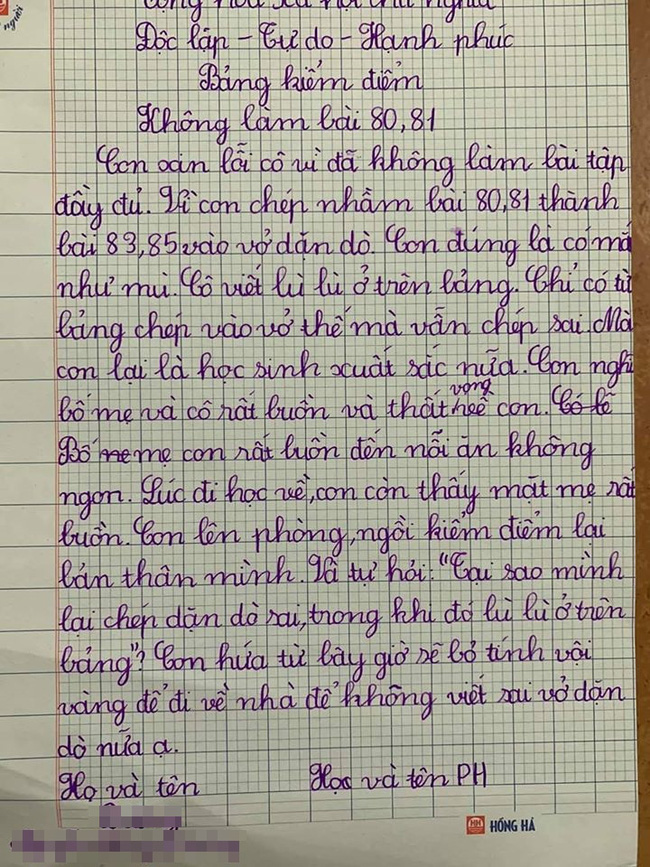 người
Cộng hòa xã hội chủ nghĩa
Độc lập - Tự do - Hạnh phúc
Bảng kiểm điểm
Không làm bài 80,81
Con xin lỗi cô vì đã không làm bài tập
đầy đủ. Vì con chép nhầm bài 80,81 thành
bài 83,85 vào vở dặn dò. Con đúng là có mắ
như mù. Cô viết lù lù ở trên bảng. Chỉ có từ
bảng chép vào vở thế mà vẫn chép sai. Mà
con lại là học sinh xuất sắc nữa. Con nghĩ
bố mẹ và cô rất buồn và thất vọng về con. Có lẽ
Bố me mẹ con rất buồn đến nỗi ăn không
ngon. Lúc đi học về, con còn thấy mặt mẹ rất
buồn. Con lên phòng, ngồi kiểm điểm lại
bản thân mình. Và tự hỏi: "Tại sao mình
lại chép dặn dò sai, trong khi đó lù lù ở trên
bảng"? Con hứa từ bây giờ sẽ bỏ tính vội
vàng để đi về nhà để không viết sai vở dặn
dò nữa ạ.
Họ và tên Học và tên PH
HH HỒNG HÀ